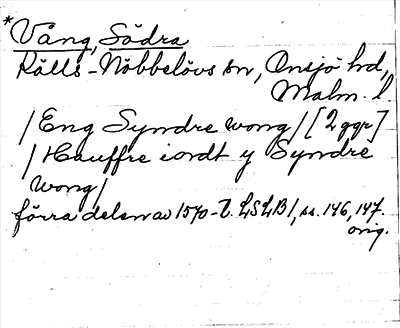 *Vång, Södra
Källs-Nöbbelövs sn, Onsjö hd,
Malm. l.
/Eng Syndre wong/[2 ggr]
/Hauffre iordt y Syndre
wong/
förra delen av 1570-t. LSLB1, ss. 146, 147.
orig.